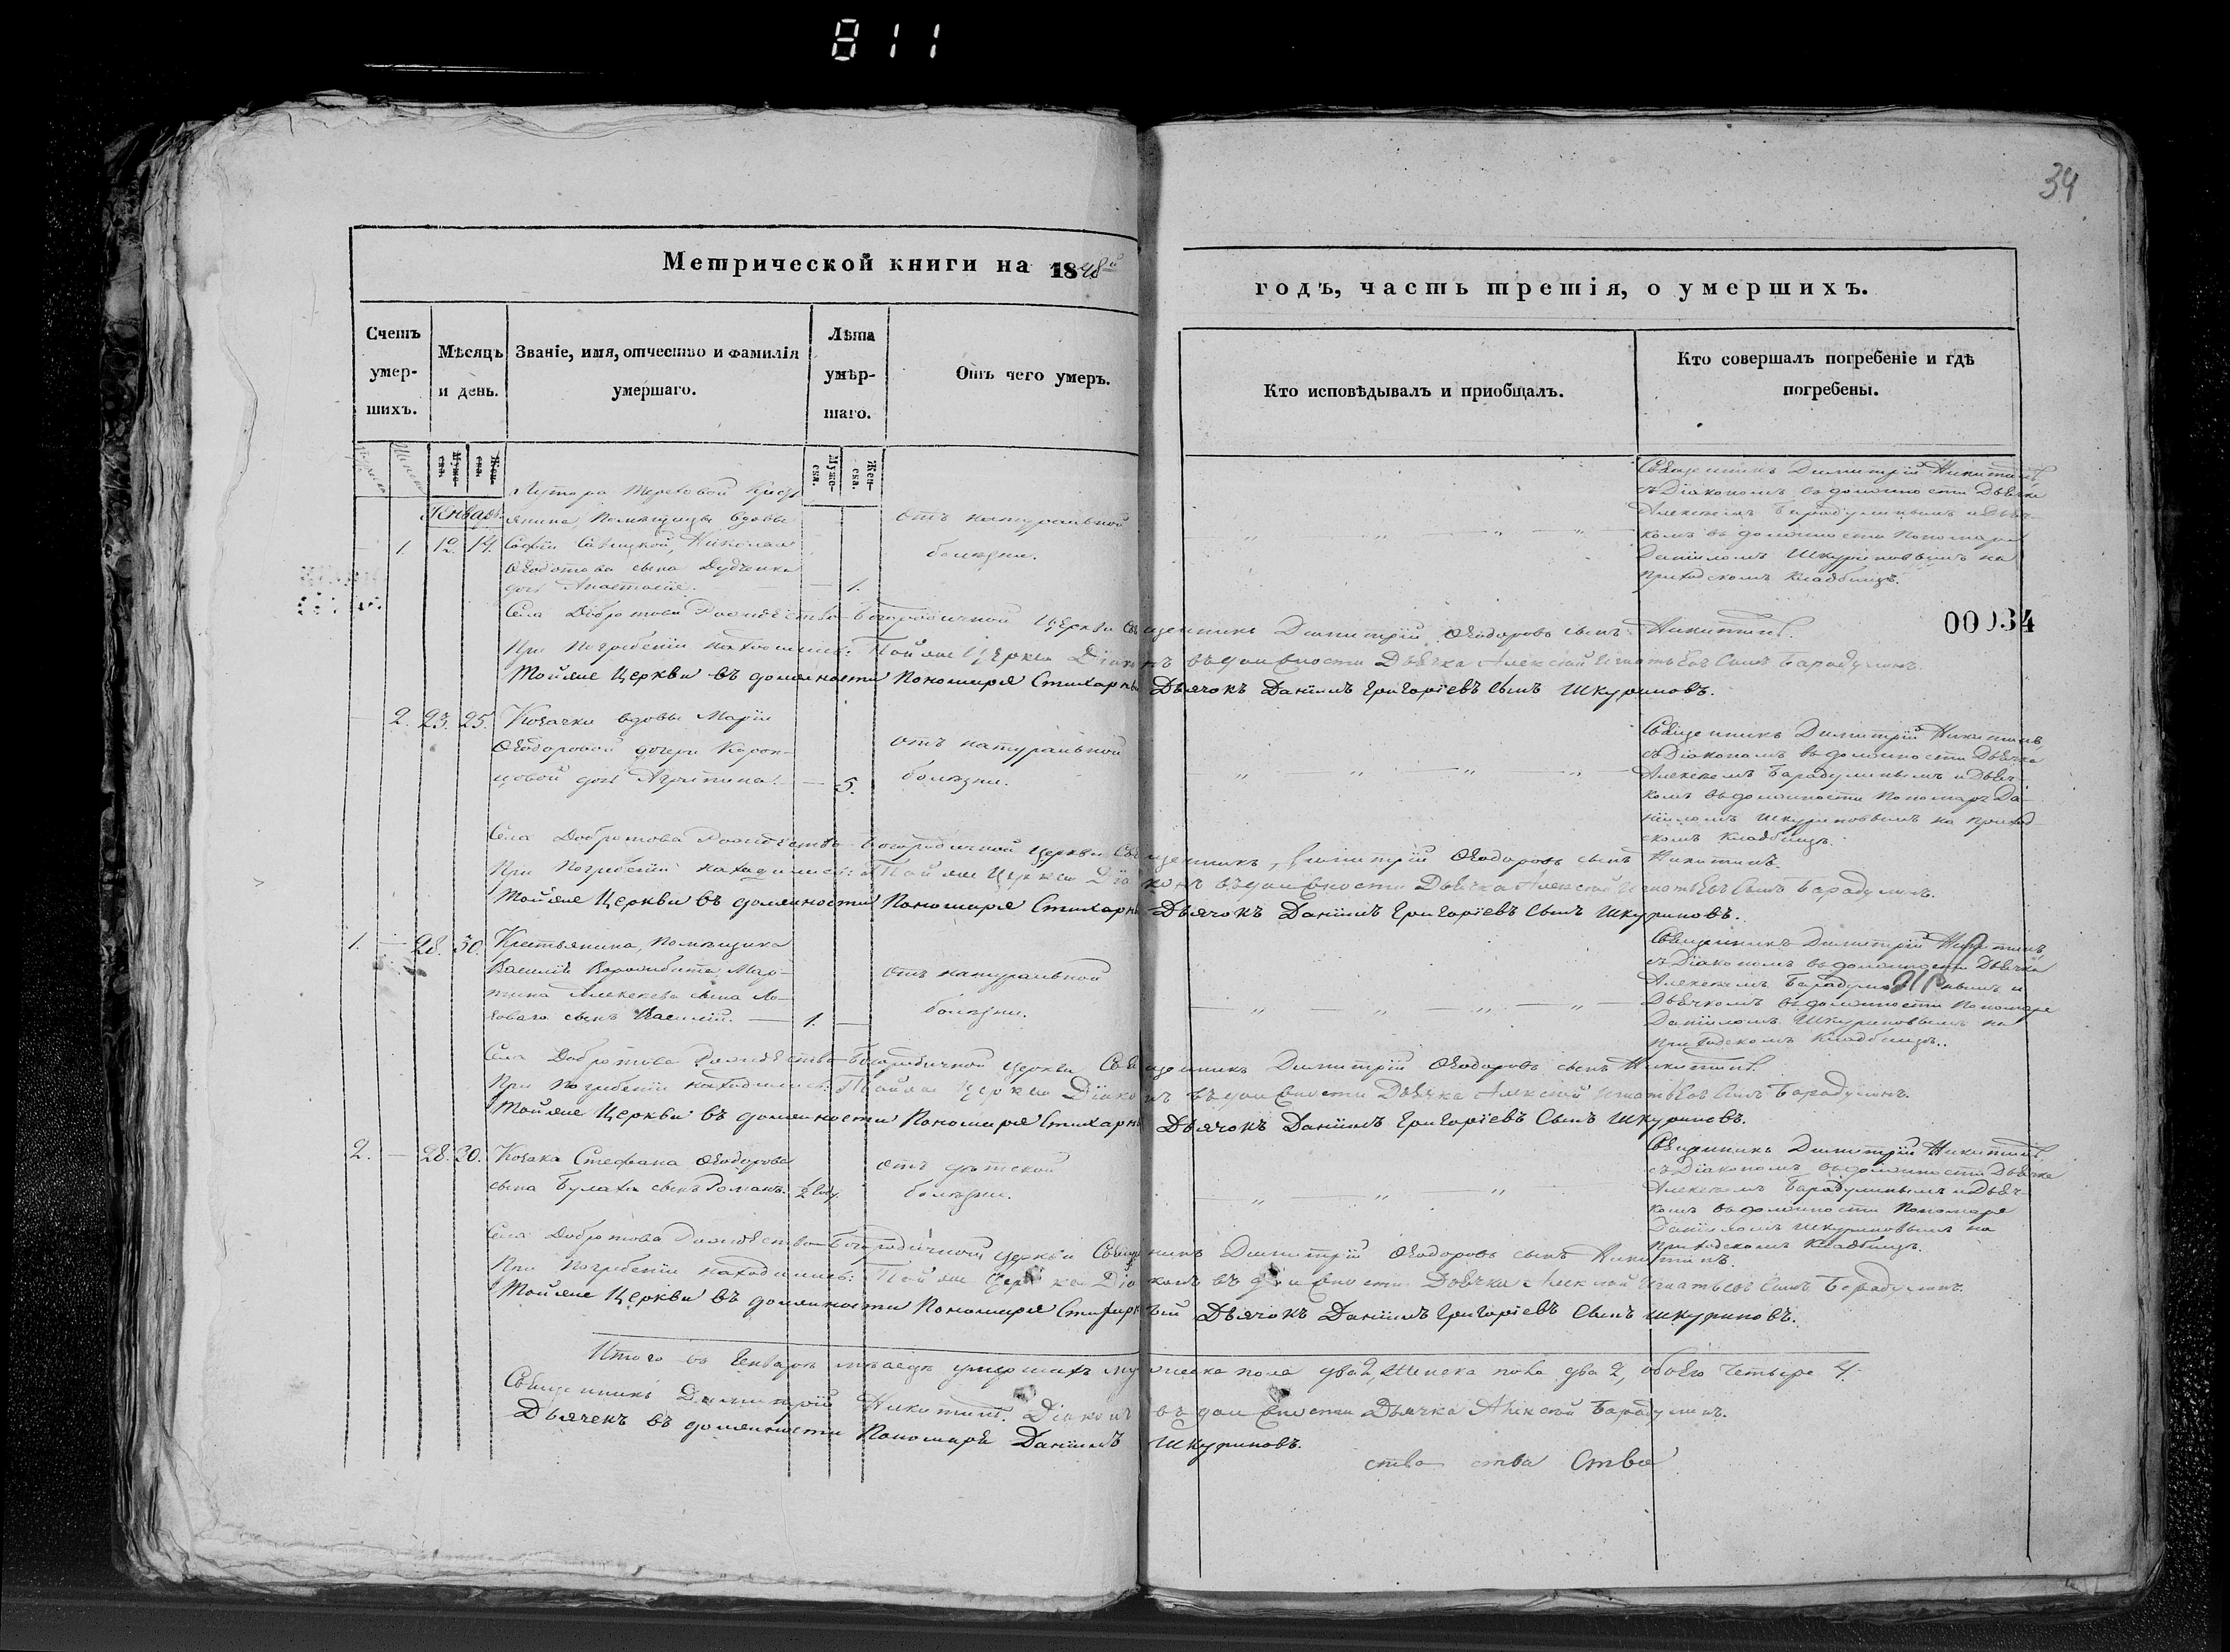 811
34
Метрической книги на 1848й
годъ, часть третія, о умершихъ.
Счетъ умер-шихъ.
Мѣсяцъ и день.
Званіе, имя, отчество и фамилія умершаго.
Лѣта умѣр-шаго.
Отъ чего умеръ.
Кто исповѣдывалъ и приобщалъ.
Кто совершалъ погребеніе и гдѣ погребены.
Муже-ска.
Жен-ска.
Муже-ска.
Жен-ска.
Январь
1. 12. 14.
Хутора
янина Помѣщицы вдовы
Софіи Савицкой, Николая
Ѳеодотова сына Дудченка
дочь Анастасія. — 1.
отъ натуральной
болѣзни.
Священникъ Димитрій Никитинъ
съ Діакономъ въ должности Дьячка
Алексѣемъ Барадулинымъ и Дьяч-
комъ въ должности Пономаря
Даніиломъ Шкуриновымъ на
приходскомъ кладбищѣ.
00034
Села Добротова Рождество-Богородичной Церкви Священникъ Димитрій Ѳеодоровъ сынъ Никитинъ.
При погребеніи находились: Той же Церкви Діаконъ въ должности Дьячка Алексѣй Игнатьевъ Сынъ Барадулинъ.
Той же Церкви въ должности Пономаря Стихарный Дьячокъ Даніилъ Григоріевъ Сынъ Шкуриновъ.
2. 23. 25.
Козачки вдовы Маріи
Ѳеодоровой дочери Корон-
цовой дочь Агрипина. — 5.
отъ натуральной
болѣзни.
Священникъ Димитрій Никитинъ
съ Діакономъ въ должности Дьячка
Алексѣемъ Барадулинымъ и Дьяч-
комъ въ должности Пономаря Да-
ніиломъ Шкуриновымъ на приход-
скомъ кладбищѣ.
Села Добротова Рождество-Богородичной Церкви Священникъ Димитрій Ѳеодоровъ сынъ Никитинъ.
При погребеніи находились: Той же Церкви Діаконъ въ должности Дьячка Алексѣй Игнатьевъ Сынъ Барадулинъ.
Той же Церкви въ должности Пономаря Стихарный Дьячокъ Даніилъ Григоріевъ Сынъ Шкуриновъ.
1. — 28. 30.
Крестьянина, помѣщика
Василія Мар-
тина Алексѣева сына
сынъ Василій. — 1. —
отъ натуральной
болѣзни.
Священникъ Димитрій Никитинъ
съ Діакономъ въ должности Дьячка
Алексѣемъ Барадулинымъ и
Дьячкомъ въ должности Пономаря
Даніиломъ Шкуриновымъ на
приходскомъ кладбищѣ.
Села Добротова Рождество-Богородичной Церкви Священникъ Димитрій Ѳеодоровъ сынъ Никитинъ.
При погребеніи находились: Той же Церкви Діаконъ въ должности Дьячка Алексѣй Игнатьевъ Сынъ Барадулинъ.
Той же Церкви въ должности Пономаря Стихарный Дьячокъ Даніилъ Григоріевъ Сынъ Шкуриновъ.
2. — 28. 30.
Козака Стефана Ѳеодорова
сына Булаха сынъ Романъ. ½ году.
отъ дѣтской
болѣзни.
Священникъ Димитрій Никитинъ
съ Діакономъ въ должности Дьячка
Алексѣемъ Барадулинымъ и Дьяч-
комъ въ должности Пономаря
Даніиломъ Шкуриновымъ на
приходскомъ кладбищѣ.
Села Добротова Рождество-Богородичной Церкви Священникъ Димитрій Ѳеодоровъ сынъ Никитинъ.
При погребеніи находились: Той же Церкви Діаконъ въ должности Дьячка Алексѣй Игнатьевъ Сынъ Барадулинъ.
Той же Церкви въ должности Пономаря Стихарный Дьячокъ Даніилъ Григоріевъ Сынъ Шкуриновъ.
Итого въ Генварѣ мѣсяцѣ умершихъ мужеска пола два 2, женска пола два 2, обоего четыре 4.
Священникъ Димитрій Никитинъ. Діаконъ въ должности Дьячка Алексѣй Барадулинъ.
Дьячекъ въ должности Пономаря Даніилъ Шкуриновъ.
ства ства Ства